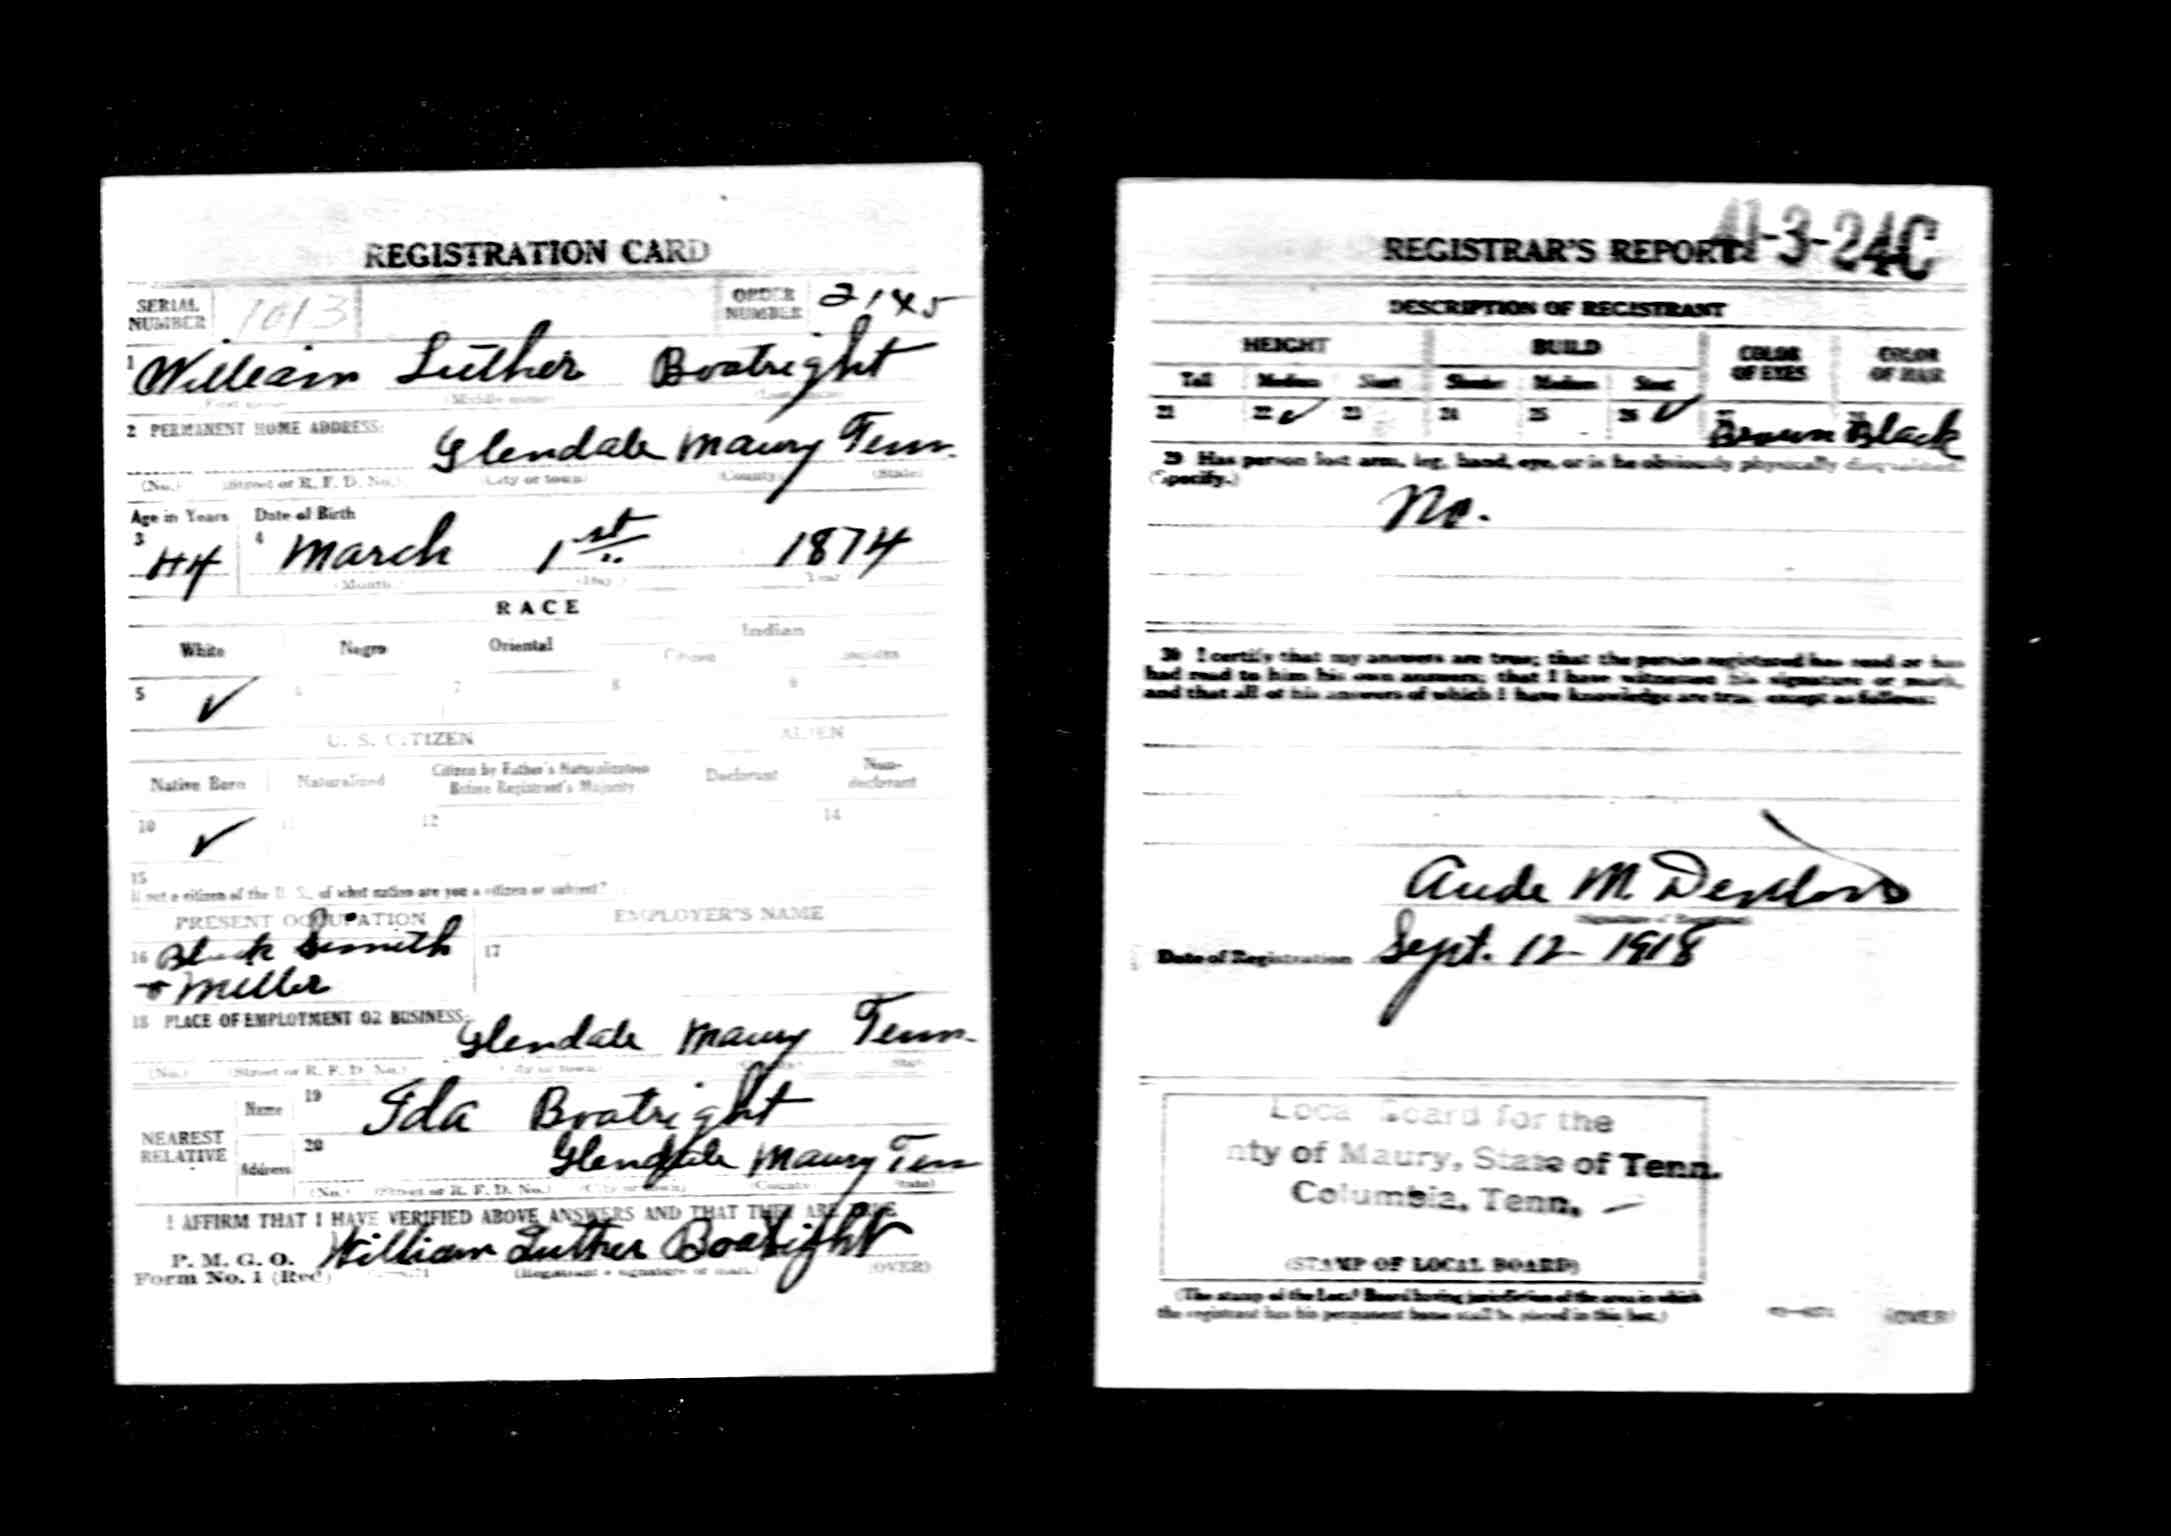 REGISTRATION CARD
SERIAL NUMBER 1013 ORDER NUMBER 2145
1 William Luther Boatright
(First name) (Middle name) (Last name)
2 PERMANENT HOME ADDRESS:
Glendale Maury Tenn.
(No.) (Street or R. F. D. No.) (City or town) (County) (State)
Age in Years Date of Birth
3 44 4 March 1st 1874
(Month) (Day) Year
RACE
White Negro Oriental Indian
Citizen
5 ✓ 6 7 8 9
U. S. CITIZEN ALIEN
Native Born Naturalized Citizen by Father's Naturalization Before Registrant's Majority Declarant Non-declarant
10 ✓ 11 12 14
15
If not a citizen of the U. S., of what nation are you a citizen or subject?
PRESENT OCCUPATION EMPLOYER'S NAME
16 Black Smith 17
+ Miller
18 PLACE OF EMPLOYMENT OR BUSINESS:
Glendale Maury Tenn.
(No.) (Street or R. F. D. No.) (City or town) (County) (State)
NEAREST RELATIVE
Name 19 Ida Boatright
Address 20 Glendale Maury Ten
(No.) (Street or R. F. D. No.) (City or town) (County) (State)
I AFFIRM THAT I HAVE VERIFIED ABOVE ANSWERS AND THAT THEY ARE TRUE
P. M. G. O.
Form No. 1 (Red) William Luther Boatright
(Registrant's signature or mark) (OVER)
REGISTRAR'S REPORT 41-3-24C
DESCRIPTION OF REGISTRANT
HEIGHT BUILD COLOR OF EYES COLOR OF HAIR
Tall Medium Short Slender Medium Stout
21 22 ✓ 23 24 25 26 ✓ 27 Brown 28 Black
29 Has person lost arm, leg, hand, eye, or is he obviously physically disqualified?
(Specify.)
No.
30 I certify that my answers are true; that the person registered has read or has
had read to him his own answers; that I have witnessed his signature or mark,
and that all of his answers of which I have knowledge are true, except as follows:
M.
(Signature of Registrar)
Date of Registration Sept. 12 - 1918
Local Board for the
nty of Maury, State of Tenn.
Columbia, Tenn.
(STAMP OF LOCAL BOARD)
(The stamp of the Local Board having jurisdiction of the area in which
the registrant has his permanent home shall be placed in this box.)
(OVER)